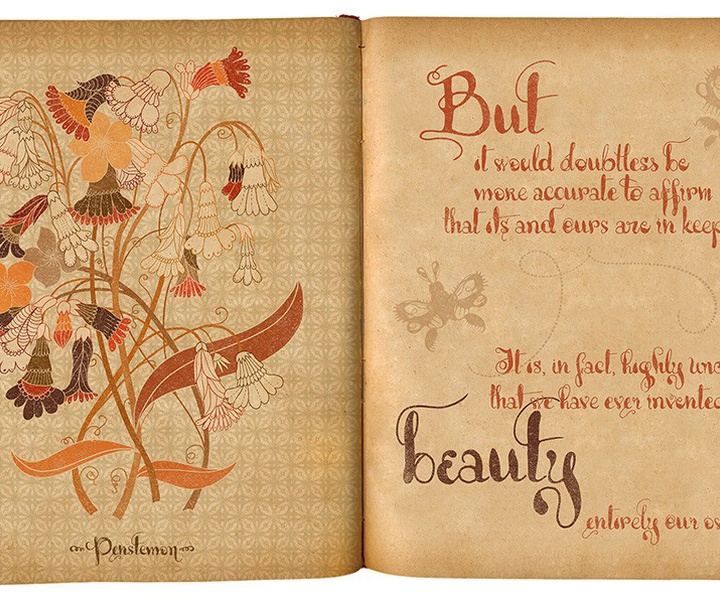 Penstemon
But
it would doubtless be
more accurate to affirm
that its and ours are in keep
It is, in fact, highly unc
that we have ever invented
beauty
entirely our